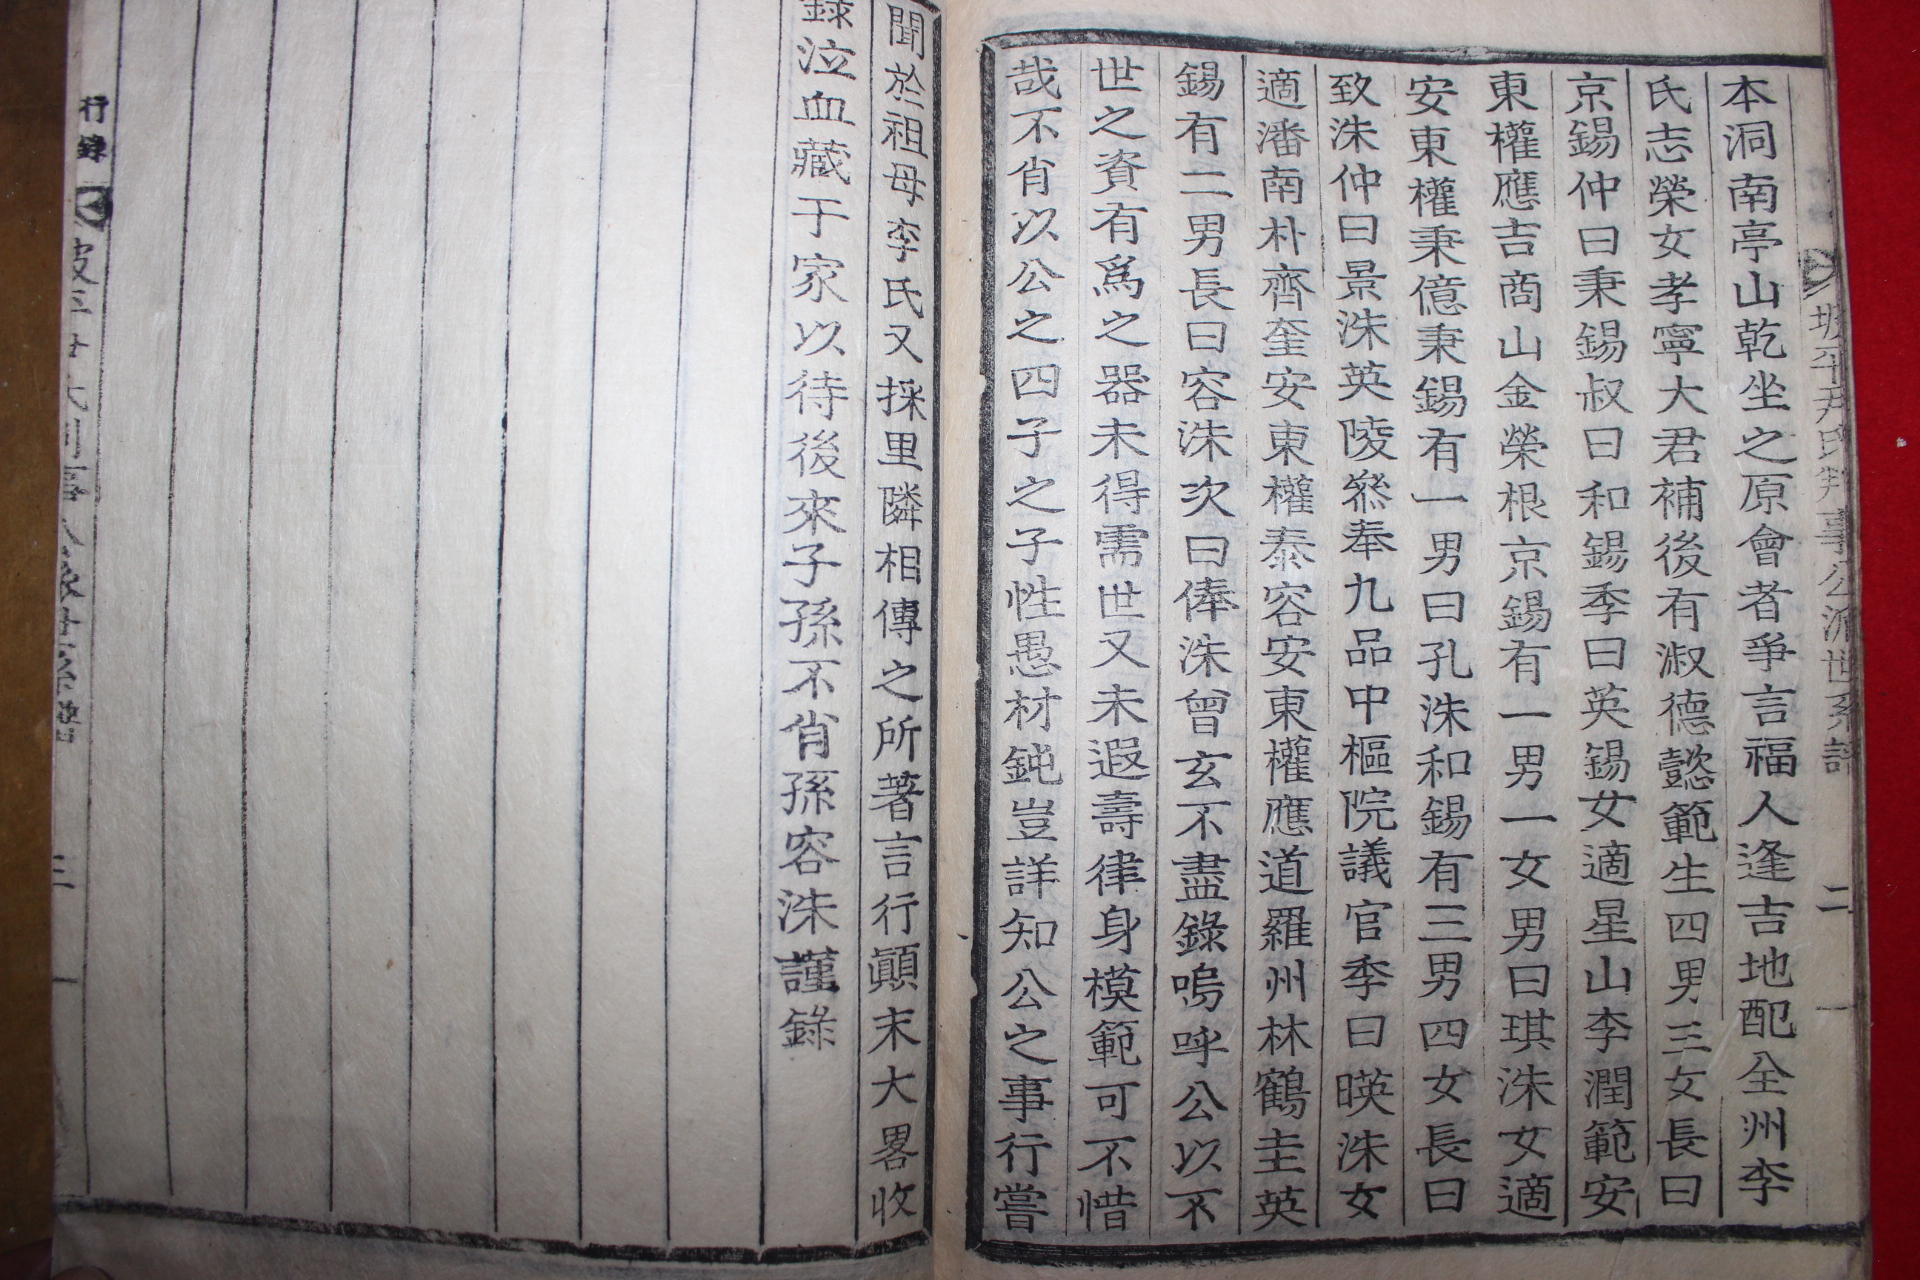 坡平尹氏判事公派世系譜 二
本洞南亭山乾坐之原會者爭言福人逢吉地配全州李
氏志榮女孝寧大君補後有淑德懿範生四男三女長曰
京錫仲曰秉錫叔曰和錫季曰英錫女適星山李潤範安
東權應吉商山金榮根京錫有一男一女男曰琪洙女適
安東權秉億秉錫有一男曰孔洙和錫有三男四女長曰
致洙仲曰景洙英陵叅奉九品中樞院議官季曰暎洙女
適潘南朴齊奎安東權泰容安東權應道羅州林鶴圭英
錫有二男長曰容洙次曰俸洙曾玄不盡錄嗚呼公以不
世之資有爲之器未得需世又未遐壽律身模範可不惜
哉不肖以公之四子之子性愚材鈍豈詳知公之事行嘗
聞於祖母李氏又採里隣相傳之所著言行顚末大畧收
錄泣血藏于家以待後來子孫不肖孫容洙謹錄
行錄